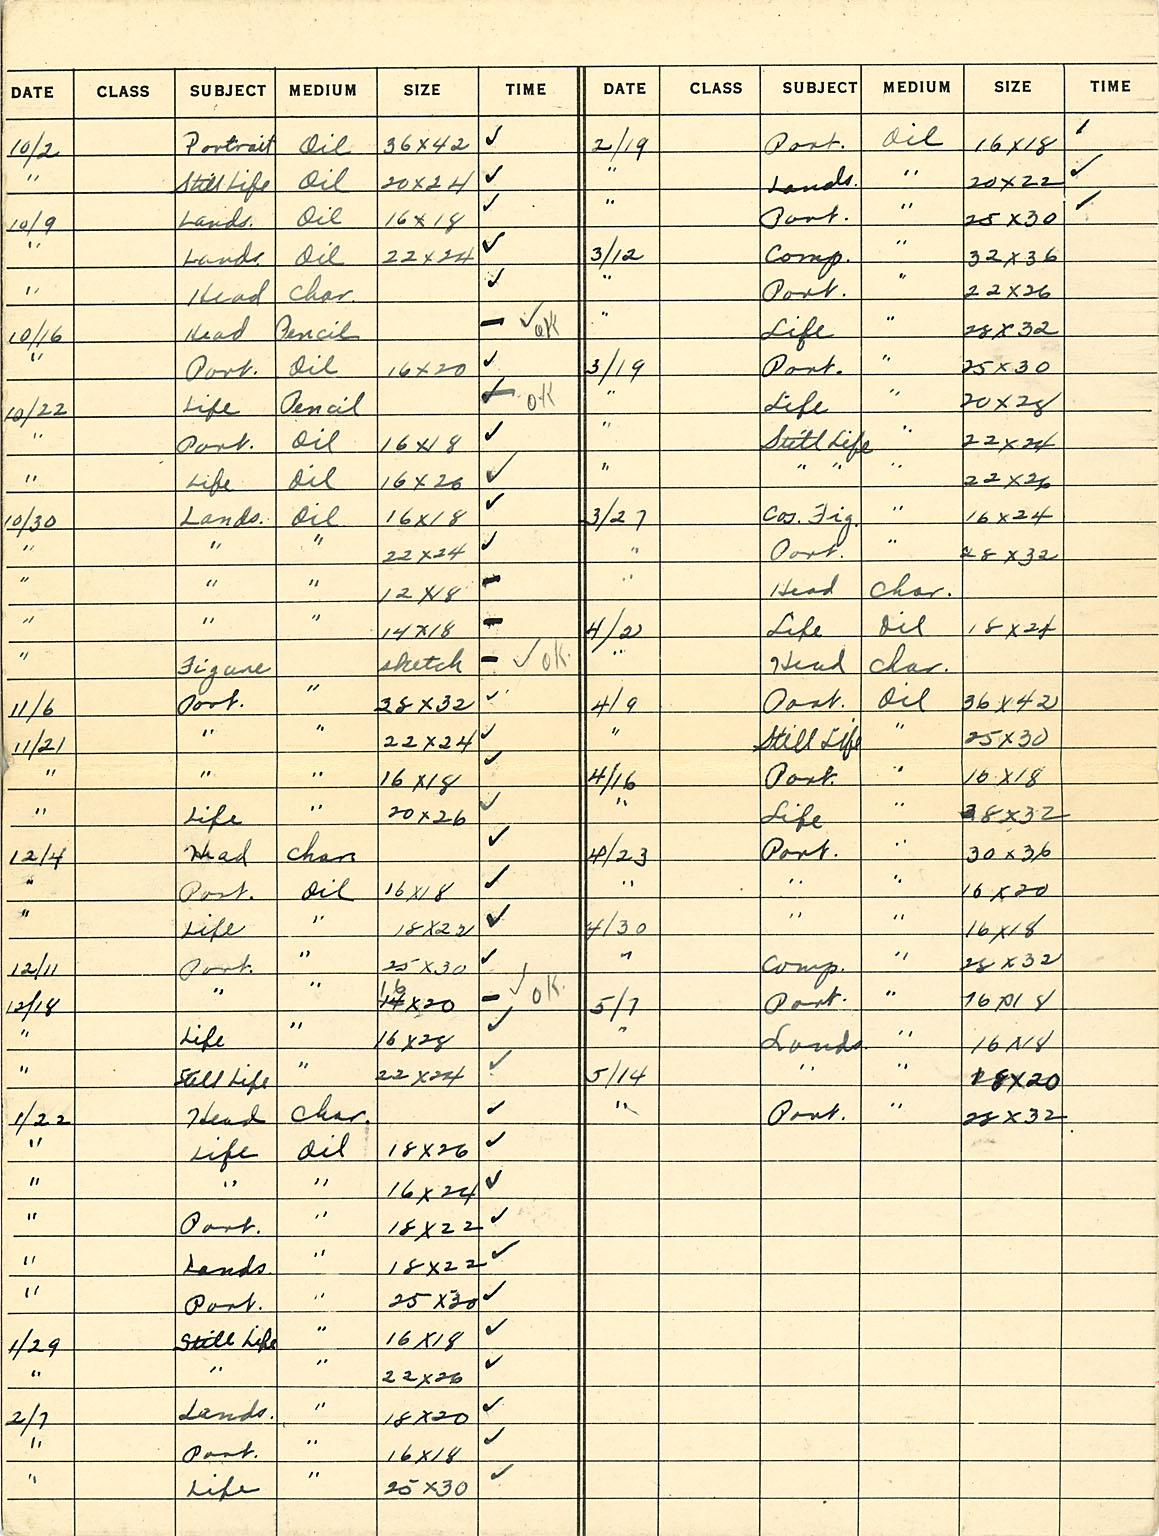 DATE CLASS SUBJECT MEDIUM SIZE TIME
10/2 Portrait Oil 36X42 ✓
" Still Life Oil 20X24 ✓
10/9 Lands. Oil 16X18 ✓
" Lands. Oil 22X24 ✓
" Head Char. ✓
10/16 Head Pencil – ✓ OK
" Port. Oil 16X20 ✓
10/22 Life Pencil OK
" Port. Oil 16X18 ✓
" Life Oil 16X26 ✓
10/30 Lands. Oil 16X18 ✓
" " " 22X24 ✓
" " " 12X18 –
" " " 14X18 –
" Figure sketch – ✓ OK.
11/6 Port. " 28X32 ✓
11/21 " " 22X24 ✓
" " " 16X18 ✓
" Life " 20X26 ✓
12/4 Head char ✓
" Port. Oil 16X18 ✓
" Life " 18X22 ✓
12/11 Port. " 25X30 ✓
12/18 " " 16 X20 – ✓ OK.
" Life " 16X28 ✓
" Still Life " 22X24 ✓
1/22 Head Char. ✓
" Life Oil 18X26 ✓
" " " 16X24 ✓
" Port. " 18X22 ✓
" Lands. " 18X22 ✓
" Port. " 25X30 ✓
1/29 Still Life " 16X18 ✓
" " " 22X26 ✓
2/7 Lands. " 18X20 ✓
" Port. " 16X18 ✓
" Life " 25X30 ✓
DATE CLASS SUBJECT MEDIUM SIZE TIME
2/19 Port. Oil 16X18 ✓
" Lands. " 20X22 ✓
" Port. " 25X30 ✓
3/12 Comp. " 32X36
" Port. " 22X26
" Life " 28X32
3/19 Port. " 25X30
" Life " 20X28
" Still Life " 22X24
" " " " 22X26
3/27 Cos. Fig. " 16X24
" Port. " 28X32
" Head Char.
4/2 Life Oil 18X24
" Head Char.
4/9 Port. Oil 36X42
" Still Life " 25X30
4/16 Port. " 16X18
" Life " 28X32
4/23 Port. " 30X36
" " " 16X20
4/30 " " 16X18
" Comp. " 28X32
5/7 Port. " 16X18
" Lands. " 16X18
5/14 " " 18X20
" Port. " 28X32